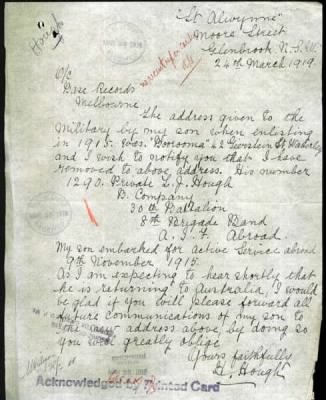 "St Alwynne"
Moore Street
Glenbrook. N.S.W.
24th March 1919.
O/c
Base Records
Melbourne
The address given to the
Military by my son when enlisting
in 1915. was. 42 St Waverley
and I wish to notify you that I have
removed to above address. His number
1290. Private L. J. Hough
B. Company
30th Battalion
8th Brigade Band
A. I. F. Abroad
My son embarked for Active Service abroad
9th November 1915.
As I am expecting to hear shortly that
he is returning to Australia, I would
be glad if you will please forward all
future communications of my son to
the address above, by doing so
you will greatly oblige
Yours faithfully
Hough
Acknowledged by Printed Card